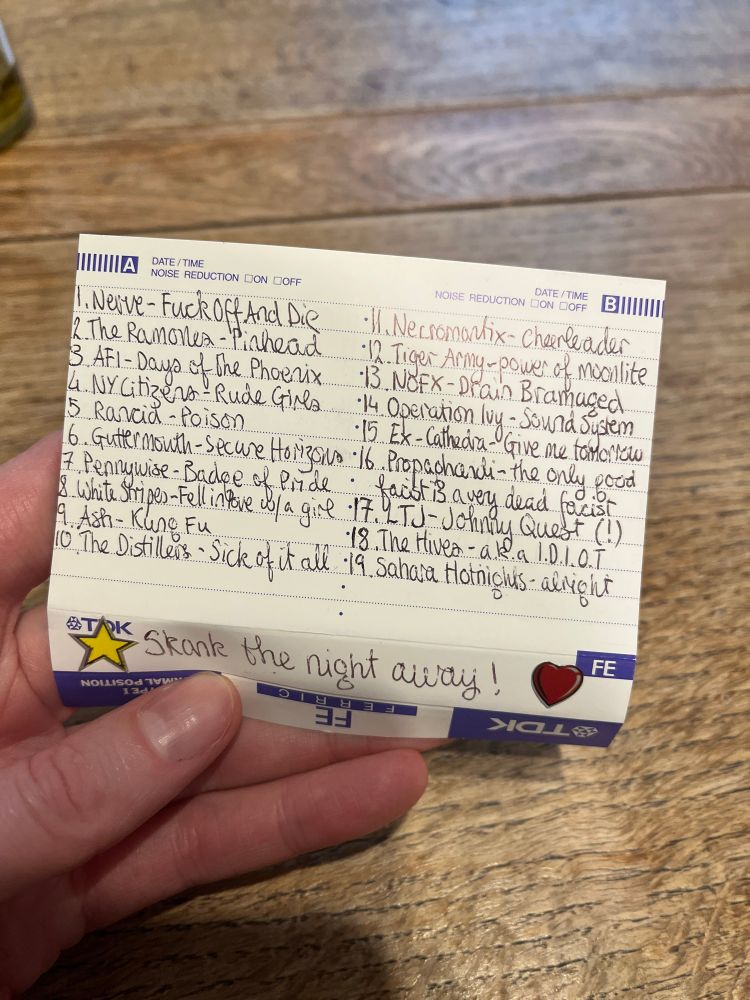 A DATE / TIME
NOISE REDUCTION □ON □OFF
1. Nerve - Fuck Off And Die
2 The Ramones - Pinhead
3 AFI - Days of The Phoenix
4. NY Citizens - Rude Girls
5 Rancid - Poison
6. Guttermouth - Secure Horizons
7. Pennywise - Badge of Pride
8 White Stripes - Fell in love w/ a girl
9 Ash - Kung Fu
10 The Distillers - Sick of it all
DATE / TIME B
NOISE REDUCTION □ON □OFF
11. Necromantix - Cheerleader
12 Tiger Army - power of moonlite
13 NOFX - Drain Bramaged
14 Operation Ivy - Sound System
15 Ex-Cathedra - Give me tomorrow
16 Propaghandi - the only good
facist is a very dead facist
17. LTJ - Johnny Quest (!)
18. The Hives - a.k.a I.D.I.O.T
19. Sahara Hotnights - alright
TDK
Skank the night away!
FE
TYPE I
NORMAL POSITION
FERRIC
FE
TDK